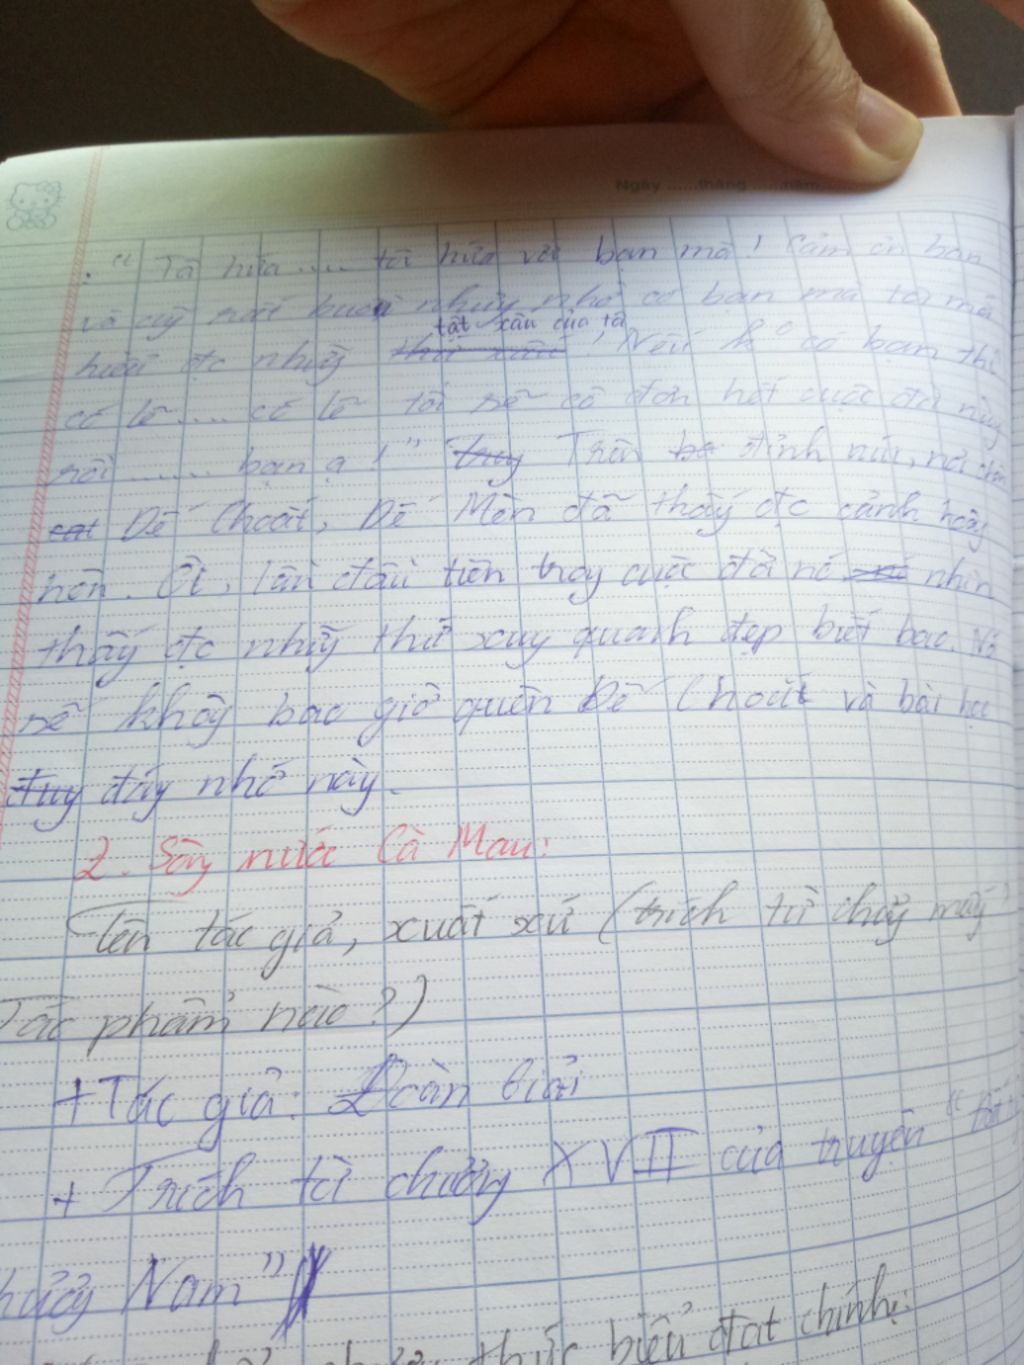 Ngày ......tháng ......năm
: " Tớ hứa .... tớ hứa với bạn mà! Cảm ơn bạn
và cũg rất buồn nhưg nhờ có bạn mà tớ mới
tật xấu của tớ
hiểu đc nhữg thứ xấu ! Nếu k° có bạn thì
có lẽ .... có lẽ tôi sẽ cô đơn hết cuộc đời này
rồi ...... bạn ạ ! " Trên đỉnh núi, nơi chôn
cất Dế Choắt, Dế Mèn đã thấy đc cảnh hoàg
hôn. Ôi, lần đầu tiên trog cuộc đời nó nhìn
thấy đc nhữg thứ xug quanh đẹp biết bao. Nó
sẽ khôg bao giờ quên Dế Choắt và bài học
đuy đáy nhớ này.
2. Sôg nước Cà Mau:
Tên tác giả, xuất xứ (trích từ chươg mấy?
Tác phẩm nào?)
+ Tác giả: Đoàn Giỏi
+ Trích từ chươg XVIII của truyện " Đất
Phươg Nam"
thức biểu đạt chính: